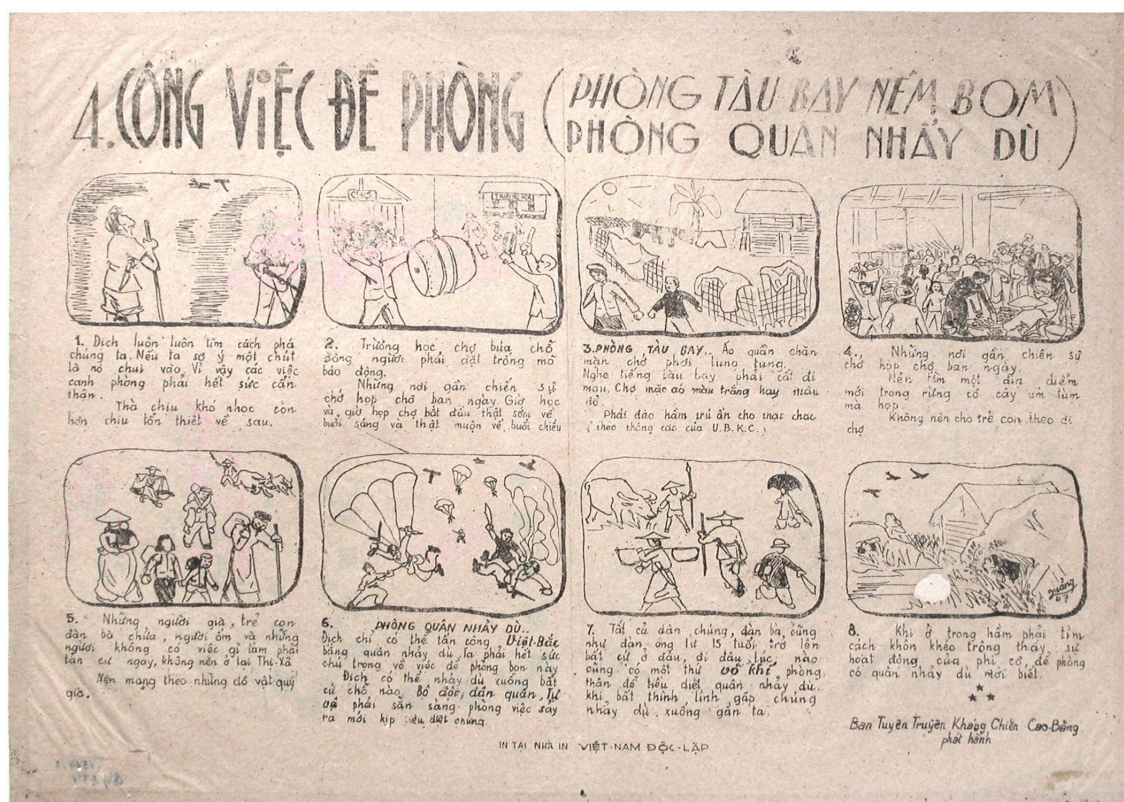 4. CÔNG VIỆC ĐỀ PHÒNG (PHÒNG TÀU BAY NÉM BOM
PHÒNG QUÂN NHẨY DÙ)
CHỢ
TRƯỜNG HỌC
1. Địch luôn luôn tìm cách phá
chúng ta. Nếu ta sơ ý một chút
là nó chui vào. Vì vậy các việc
canh phòng phải hết sức cẩn
thận.
Thà chịu khó nhọc còn
hơn chịu tổn thiết về sau.
2. Trường học, chợ búa, chỗ
đông người phải đặt trống mõ
báo động.
Những nơi gần chiến sự
chớ họp chợ ban ngày. Giờ học
và giờ họp chợ bắt đầu thật sớm về
buổi sáng và thật muộn về buổi chiều
3. PHÒNG TẦU BAY.. Áo quần chăn
màn chớ phơi lung tung.
Nghe tiếng tầu bay phải cất đi
mau. Chớ mặc áo mầu trắng hay mầu
đỏ.
Phải đào hầm trú ẩn cho
(theo thông cáo của U.B.K.C.)
4. Những nơi gần chiến sự
chớ họp chợ ban ngày.
Nên tìm một địa điểm
mới trong rừng có cây um tùm
mà họp.
Không nên cho trẻ con theo đi
chợ
5. Những người già, trẻ con
đàn bà chửa, người ốm và những
người không có việc gì làm phải
tản cư ngay, không nên ở lại Thị-Xã
Nên mang theo những đồ vật quý
giá.
6. PHÒNG QUÂN NHẨY DÙ..
Địch chỉ có thể tấn công Việt-Bắc
bằng quân nhẩy dù, ta phải hết sức
chú trọng về việc đề phòng bọn này
Địch có thể nhẩy dù xuống bất
cứ chỗ nào. Bộ đội, dân quân, Tự
vệ phải sẵn sàng phòng việc sẩy
ra mới kịp tiêu diệt chúng.
7. Tất cả dân chúng, đàn bà cũng
như đàn ông từ 15 tuổi trở lên
bất cứ ở đâu, đi đâu, lúc nào
cũng có một thứ võ khí phòng
thân để tiêu diệt quân nhẩy dù.
khi bất thình lình gặp chúng
nhẩy dù xuống gần ta.
8. Khi ở trong hầm phải tìm
cách khôn khéo trông thấy sự
hoạt động của phi cơ để phòng
có quân nhẩy dù mới biết.
Ban Tuyên Truyền Kháng Chiến Cao-Bằng
phát hành
IN TẠI NHÀ IN VIỆT-NAM ĐỘC-LẬP